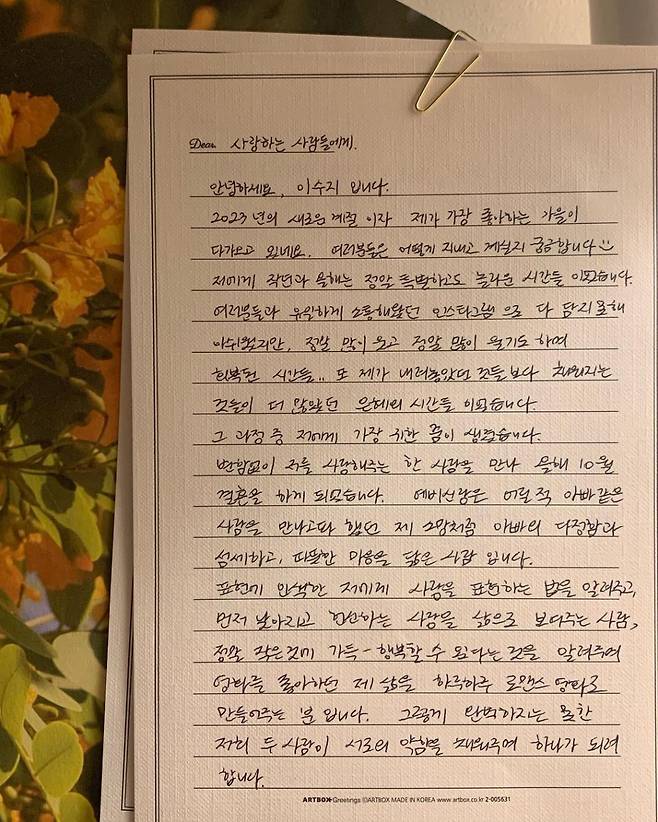 Dear. 사랑하는 사람들에게.
안녕하세요, 이수지 입니다.
2023년의 새로운 계절 이자 제가 가장 좋아하는 가을이
다가오고 있네요. 여러분들은 어떻게 지내고 계실지 궁금합니다
저에게 작년과 올해는 정말 특별하고도 놀라운 시간들 이었습니다.
여러분들과 유일하게 소통해왔던 인스타그램 으로 다 담지 못해
아쉬웠지만, 정말 많이 웃고 정말 많이 울기도 하며
회복된 시간들.. 또 제가 내려놓았던 것들 보다 채워지는
것들이 더 많았던 은혜의 시간들 이었습니다.
그 과정 중 저에게 가장 귀한 쯤이 생겼습니다.
변함없이 저를 사랑해주는 한 사람을 만나 올해 10월
결혼을 하게 되었습니다. 예비신랑은 어릴 적 아빠같은
사람을 만나고파 했던 제 소망처럼 아빠의 다정함과
섬세하고, 따뜻한 마음을 닮은 사람 입니다.
표현에 인색한 저에게 사랑을 표현하는 법을 알려주고,
먼저 낮아지고 헌신하는 사랑을 삶으로 보여주는 사람,
정말 작은것에 가득-행복할 수 있다는 것을 알려주며
영화를 좋아하던 제 삶을 하루하루 로맨스 영화로
만들어주는 분 입니다. 그렇게 완벽하지는 못한
저희 두 사람이 서로의 약함을 채워주며 하나가 되려
합니다.
ARTBOX Greetings ⓒARTBOX MADE IN KOREA www.artbox.co.kr 2-005631